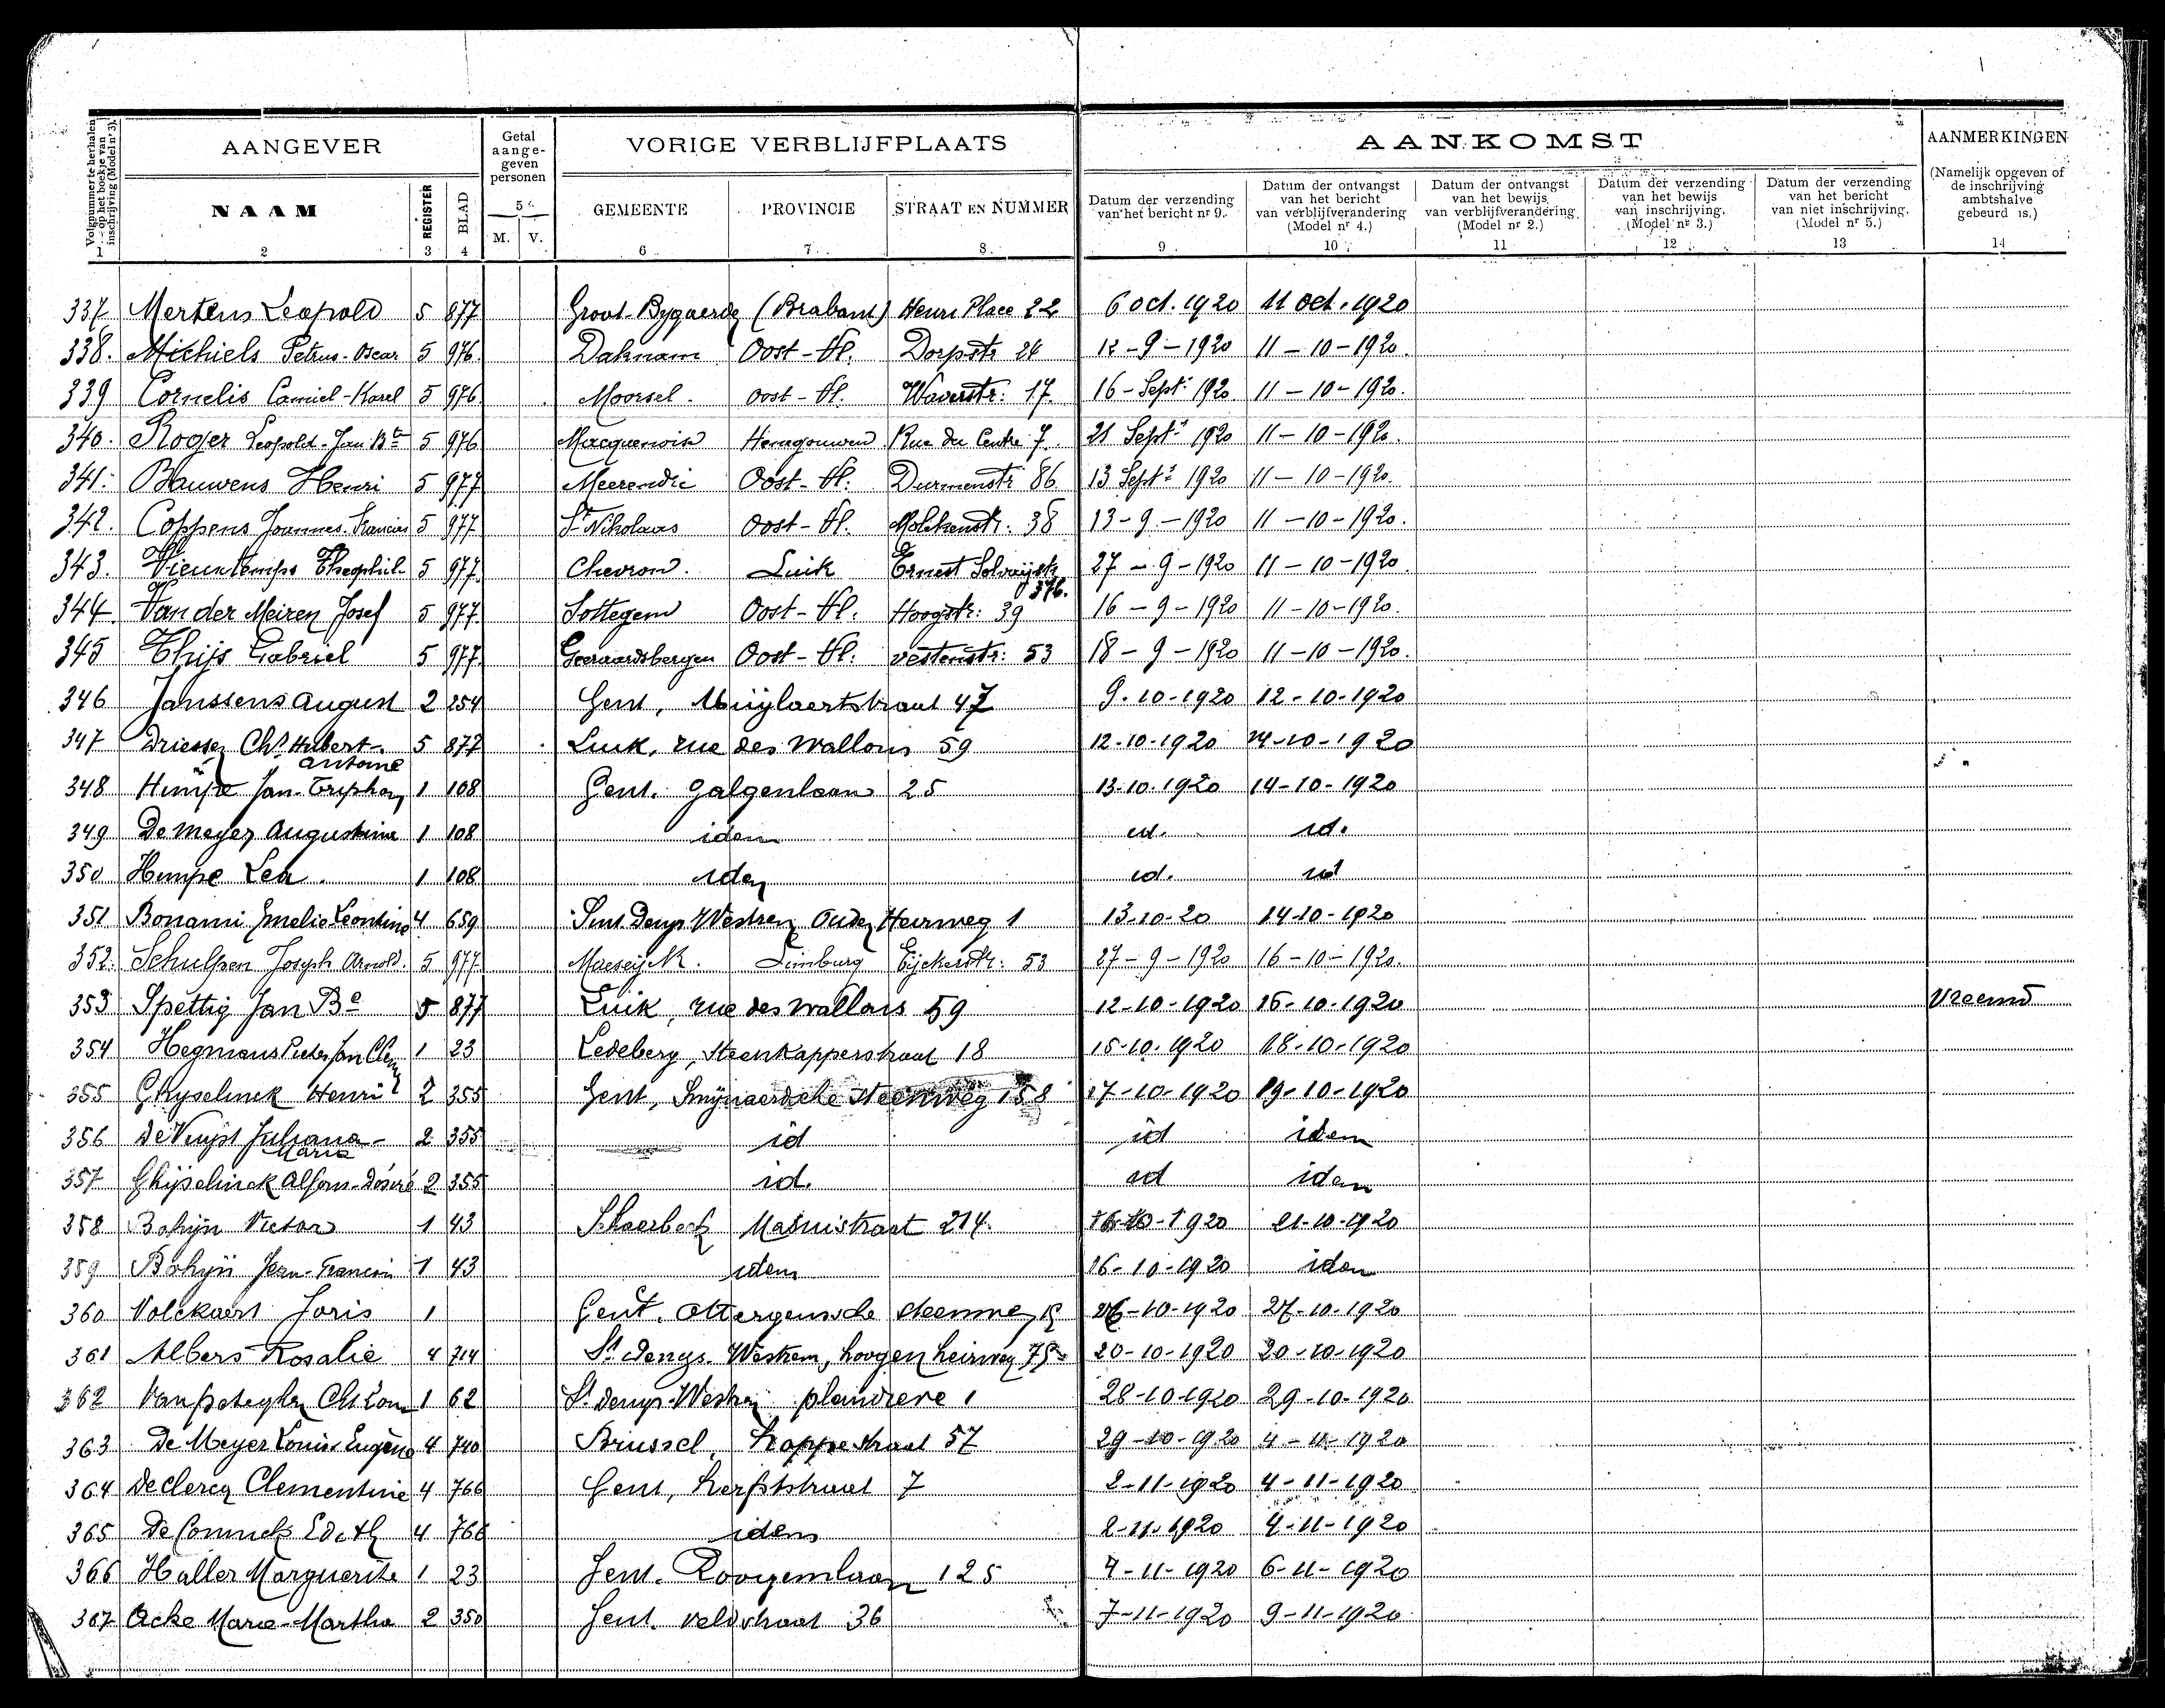 Volgnummer te herhalen op het boekje van inschrijving (Model nr 3).
AANGEVER
Getal aange- geven personen
VORIGE VERBLIJFPLAATS
AANKOMST
AANMERKINGEN
(Namelijk opgeven of de inschrijving ambtshalve gebeurd is.)
NAAM REGISTER BLAD M. V. GEMEENTE PROVINCIE STRAAT EN NUMMER
Datum der verzending van het bericht nr 9.
Datum der ontvangst van het bericht van verblijfverandering (Model nr 4.)
Datum der ontvangst van het bewijs van verblijfverandering. (Model nr 2.)
Datum der verzending van het bewijs van inschrijving. (Model nr 3.)
Datum der verzending van het bericht van niet inschrijving. (Model nr 5.)
1 2 3 4 5 6 7 8 9 10 11 12 13 14
337 Mertens Leopold 5 877 Groot-Bygaerde (Brabant) Henri Place 22 6 oct. 1920 11 oct. 1920
338. Michiels Petrus-Oscar 5 976 Daknam Oost-Vl. Dorpstr 26 12-9-1920 11-10-1920.
339 Cornelis Camiel-Karel 5 976 Moorsel. Oost-Vl. 17. 16-Sept: 1920. 11-10-1920.
340. Roger Leopold-Jan Bte 5 976 Macquenoise Henegouwen Rue du Centre 7. 21 Sept: 1920 11-10-1920.
341. Bauwens Henri 5 977 Meerendré Oost-Vl: Durmenstr 86 13 Sept: 1920 11-10-1920.
342. Coppens Joannes-Francies 5 977 St Nikolaas Oost-Vl. Molekenstr: 38 13-9-1920 11-10-1920.
343. Vieuxtemps Theophiel 5 977 Chevron. Luik Ernest Solvaijstr 376. 27-9-1920 11-10-1920.
344. Van der Meiren Josef 5 977 Sottegem Oost-Vl. Hoogstr: 39 16-9-1920 11-10-1920.
345 Thijs Gabriel 5 977 Geeraardsbergen Oost-Vl: vestenstr: 53 18-9-1920 11-10-1920.
346 Janssens August 2 254 Gent, Muijlaertstraat 47 9-10-1920 12-10-1920
347 Driessen Chs Hubert-Antoine 5 877 Luik, rue des Wallons 59 12-10-1920 14-10-1920
348 Himpe Jan-Triphon 1 108 Gent. Galgenlaan 25 13-10-1920 14-10-1920
349 De Meyer Augustine 1 108 idem id. id.
350 Himpe Lea. 1 108 idem id. id
351 Bonami Emelie Leontine 4 659 Sint Denys Westrem Ouden Heirweg 1 13-10-20 14-10-1920
352. Schulpen Joseph Arnold. 5 977 Maeseijck. Limburg Eijckerstr: 53 27-9-1920 16-10-1920.
353 Spettig Jan Be 5 877 Luik, rue des Wallons 59 12-10-1920 16-10-1920 Vreemd
354 Hegmans Pieter Jan 1 23 Ledeberg, Steenkapperstraat 18 15-10-1920 18-10-1920
355 Ghyselinck Henri 2 355 Gent, Smijnaerdsche steenweg 158 17-10-1920 19-10-1920
356 De Vuijst Juliana-Maria 2 355 id id idem
357 Ghijselinck Alfons-Désiré 2 355 id. id idem
358 Bohijn Victor 1 43 Schaerbeek Masuistraat 214. 16-10-1920 21-10-1920
359 Bohijn Jean-Francois 1 43 idem 16-10-1920 idem
360 Volckaert Joris 1 Gent. Ottergemsche steenweg 26-10-1920 27-10-1920
361 Albers Rosalie 4 714 St Denys-Westrem, hoogen heirweg 20-10-1920 20-10-1920
362 Van 1 62 St Denys-Westrem 1 28-10-1920 29-10-1920
363 De Meyer Louis Eugène 4 740 Brussel, straat 57 29-10-1920 4-11-1920
364 De clercq Clementine 4 766 Gent, herfststraat 7 2-11-1920 4-11-1920
365 De Edith 4 766 idem 2-11-1920 4-11-1920
366 Haller Marguerite 1 23 Gent. Rooigemlaan 125 4-11-1920 6-11-1920
367 Acke Marie-Martha 2 350 Gent. Veldstraat 36 7-11-1920 9-11-1920